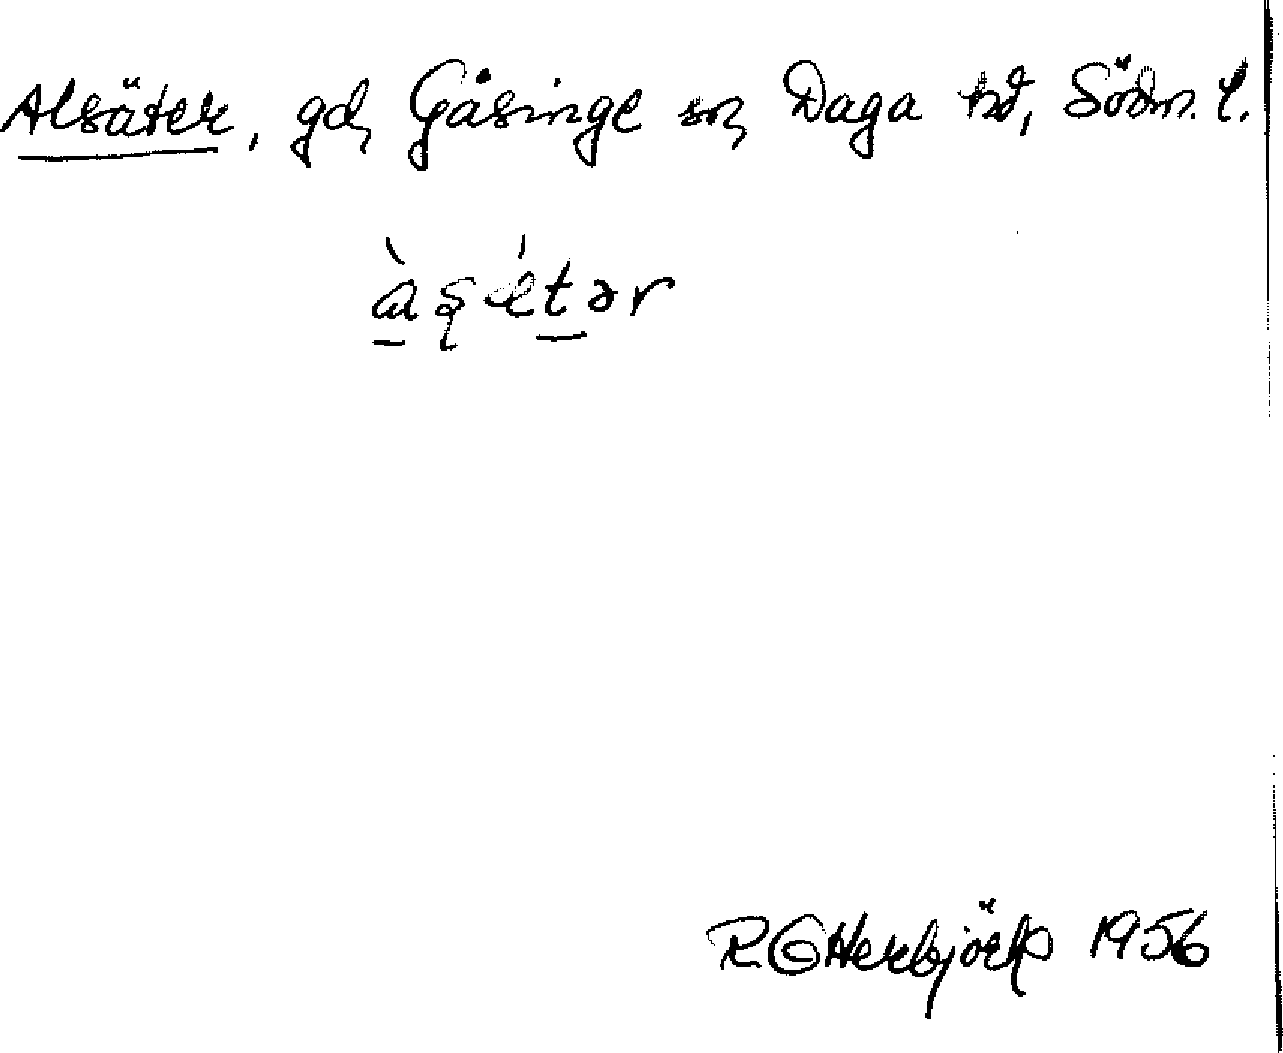 Alsäter, gd, Gåsinge sn, Daga hd, Södm. l.
àṣétər
R G Herbjörk 1956